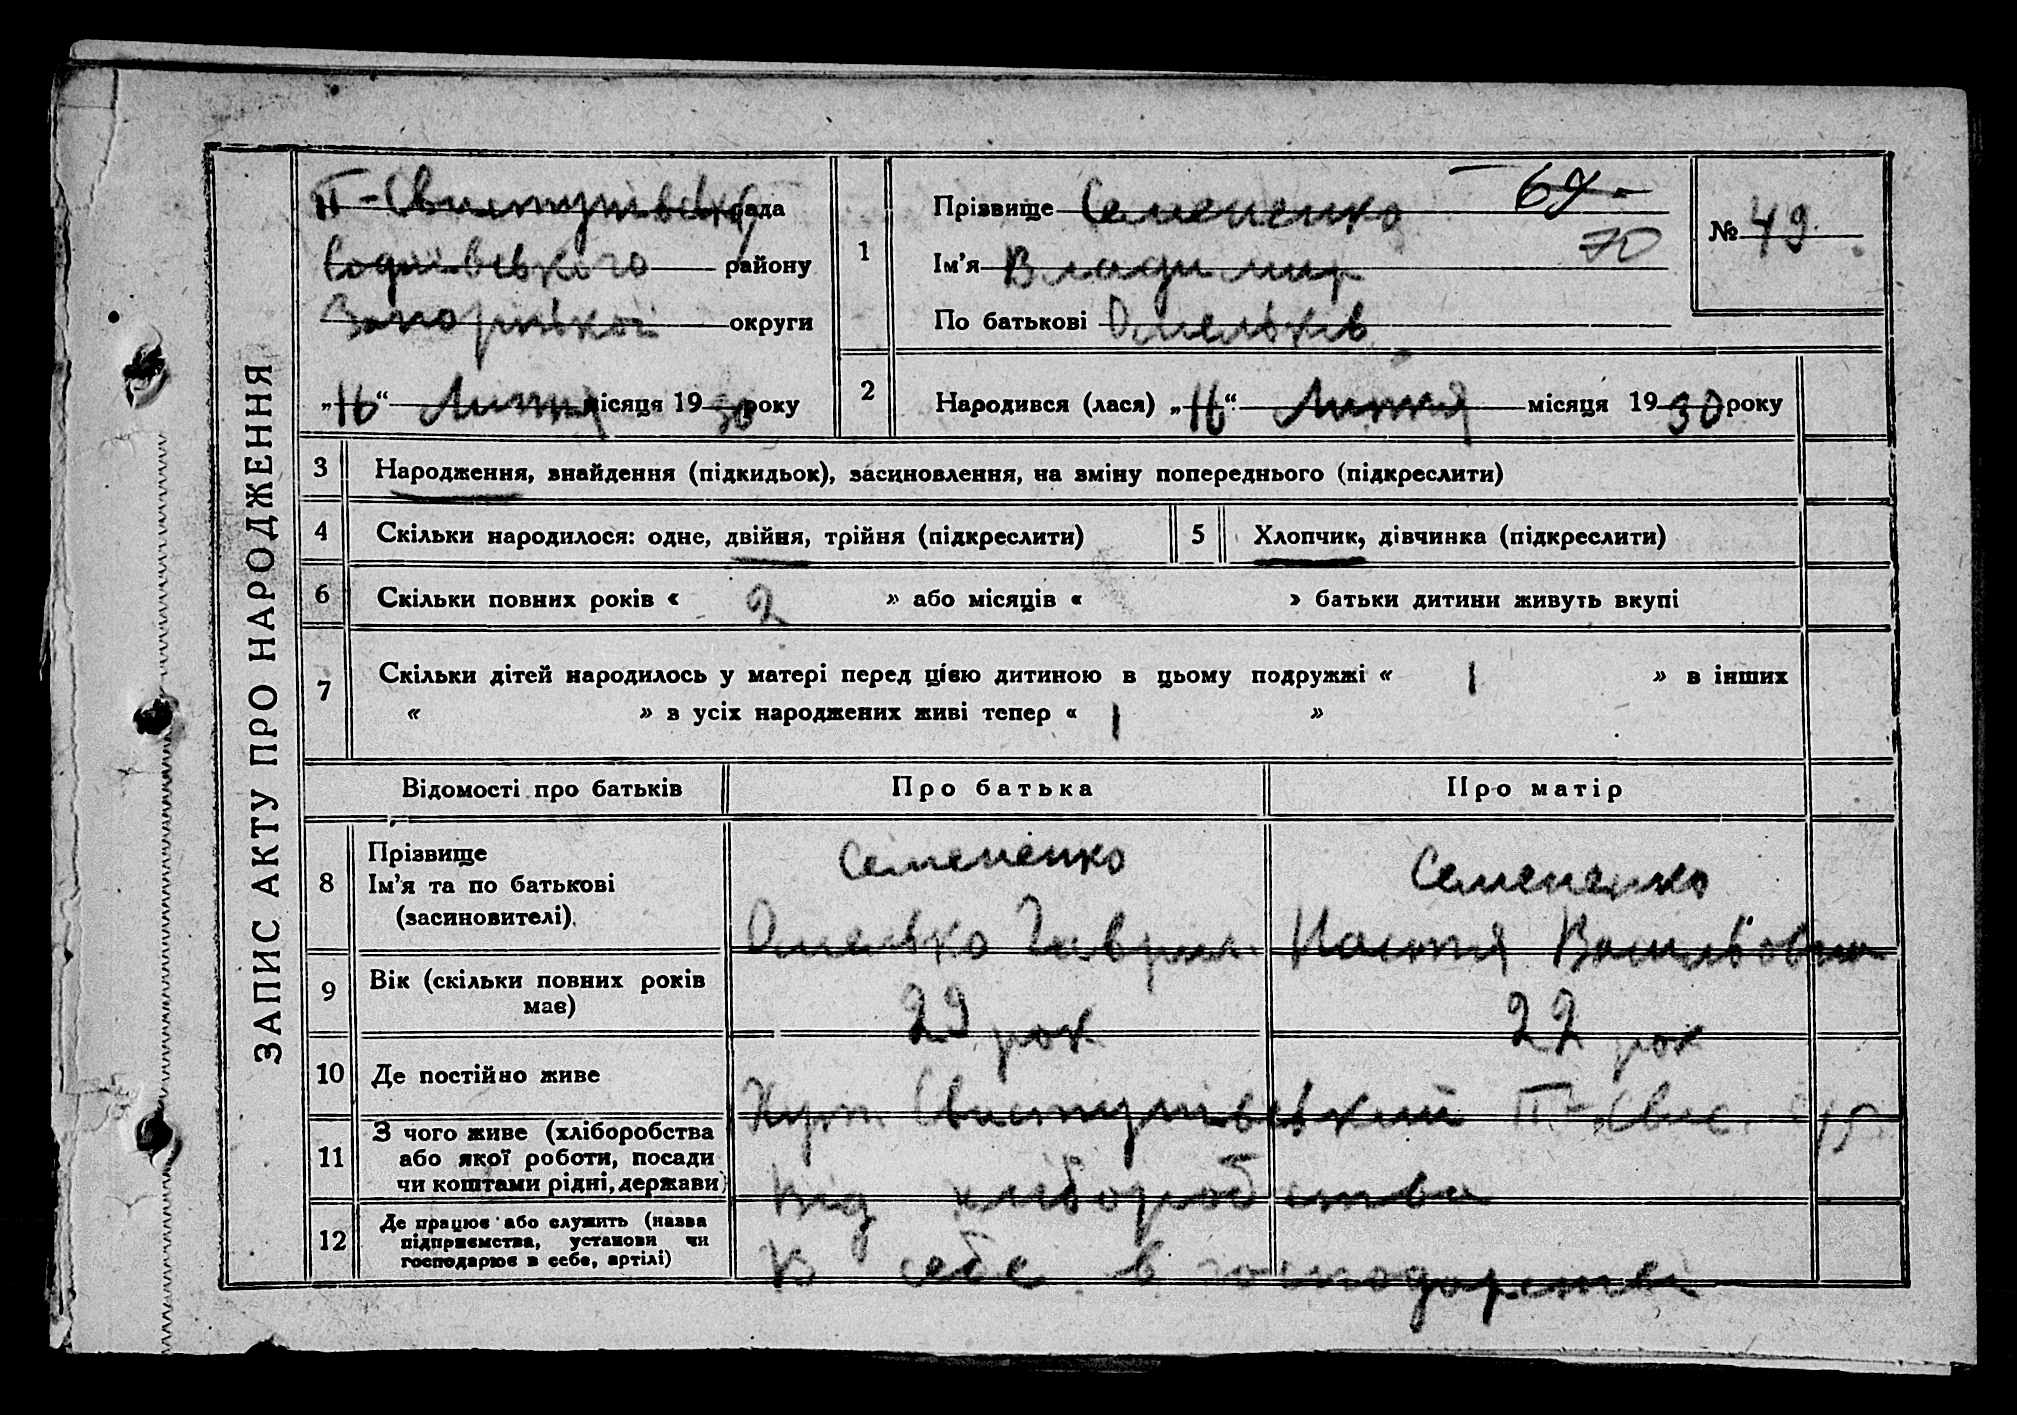 ЗАПИС АКТУ ПРО НАРОДЖЕННЯ
П-Свистунівська рада
району
Запорізької округи
„16“ Лютня місяця 1930 року
1
Прізвище Семененко 69
Ім’я Владимир 70
По батькові Омельків
№ 49
2 Народився (лася) „16“ Лютня місяця 1930 року
3 Народження, знайдення (підкидьок), засиновлення, на зміну попереднього (підкреслити)
4 Скільки народилося: одне, двійня, трійня (підкреслити) 5 Хлопчик, дівчинка (підкреслити)
6 Скільки повних років « 2 » або місяців « » батьки дитини живуть вкупі
7 Скільки дітей народилось у матері перед цією дитиною в цьому подружжі « 1 » в інших
« » з усіх народжених живі тепер « 1 »
Відомості про батьків Про батька Про матір
8 Прізвище
Ім’я та по батькові
(засиновителі)
Семененко
Омелько Гаврил.
Семененко
Настя Васильовна
9 Вік (скільки повних років
має)
29 рок 22 рок
10 Де постійно живе
Хут. Свистунівський П-Свис.
11 З чого живе (хліборобства
або якої роботи, посади
чи коштами рідні, держави)
Від хліборобства
12 Де працює або служить (назва
підприємства, установи чи
господарює в себе, артілі)
В себе в господарстві